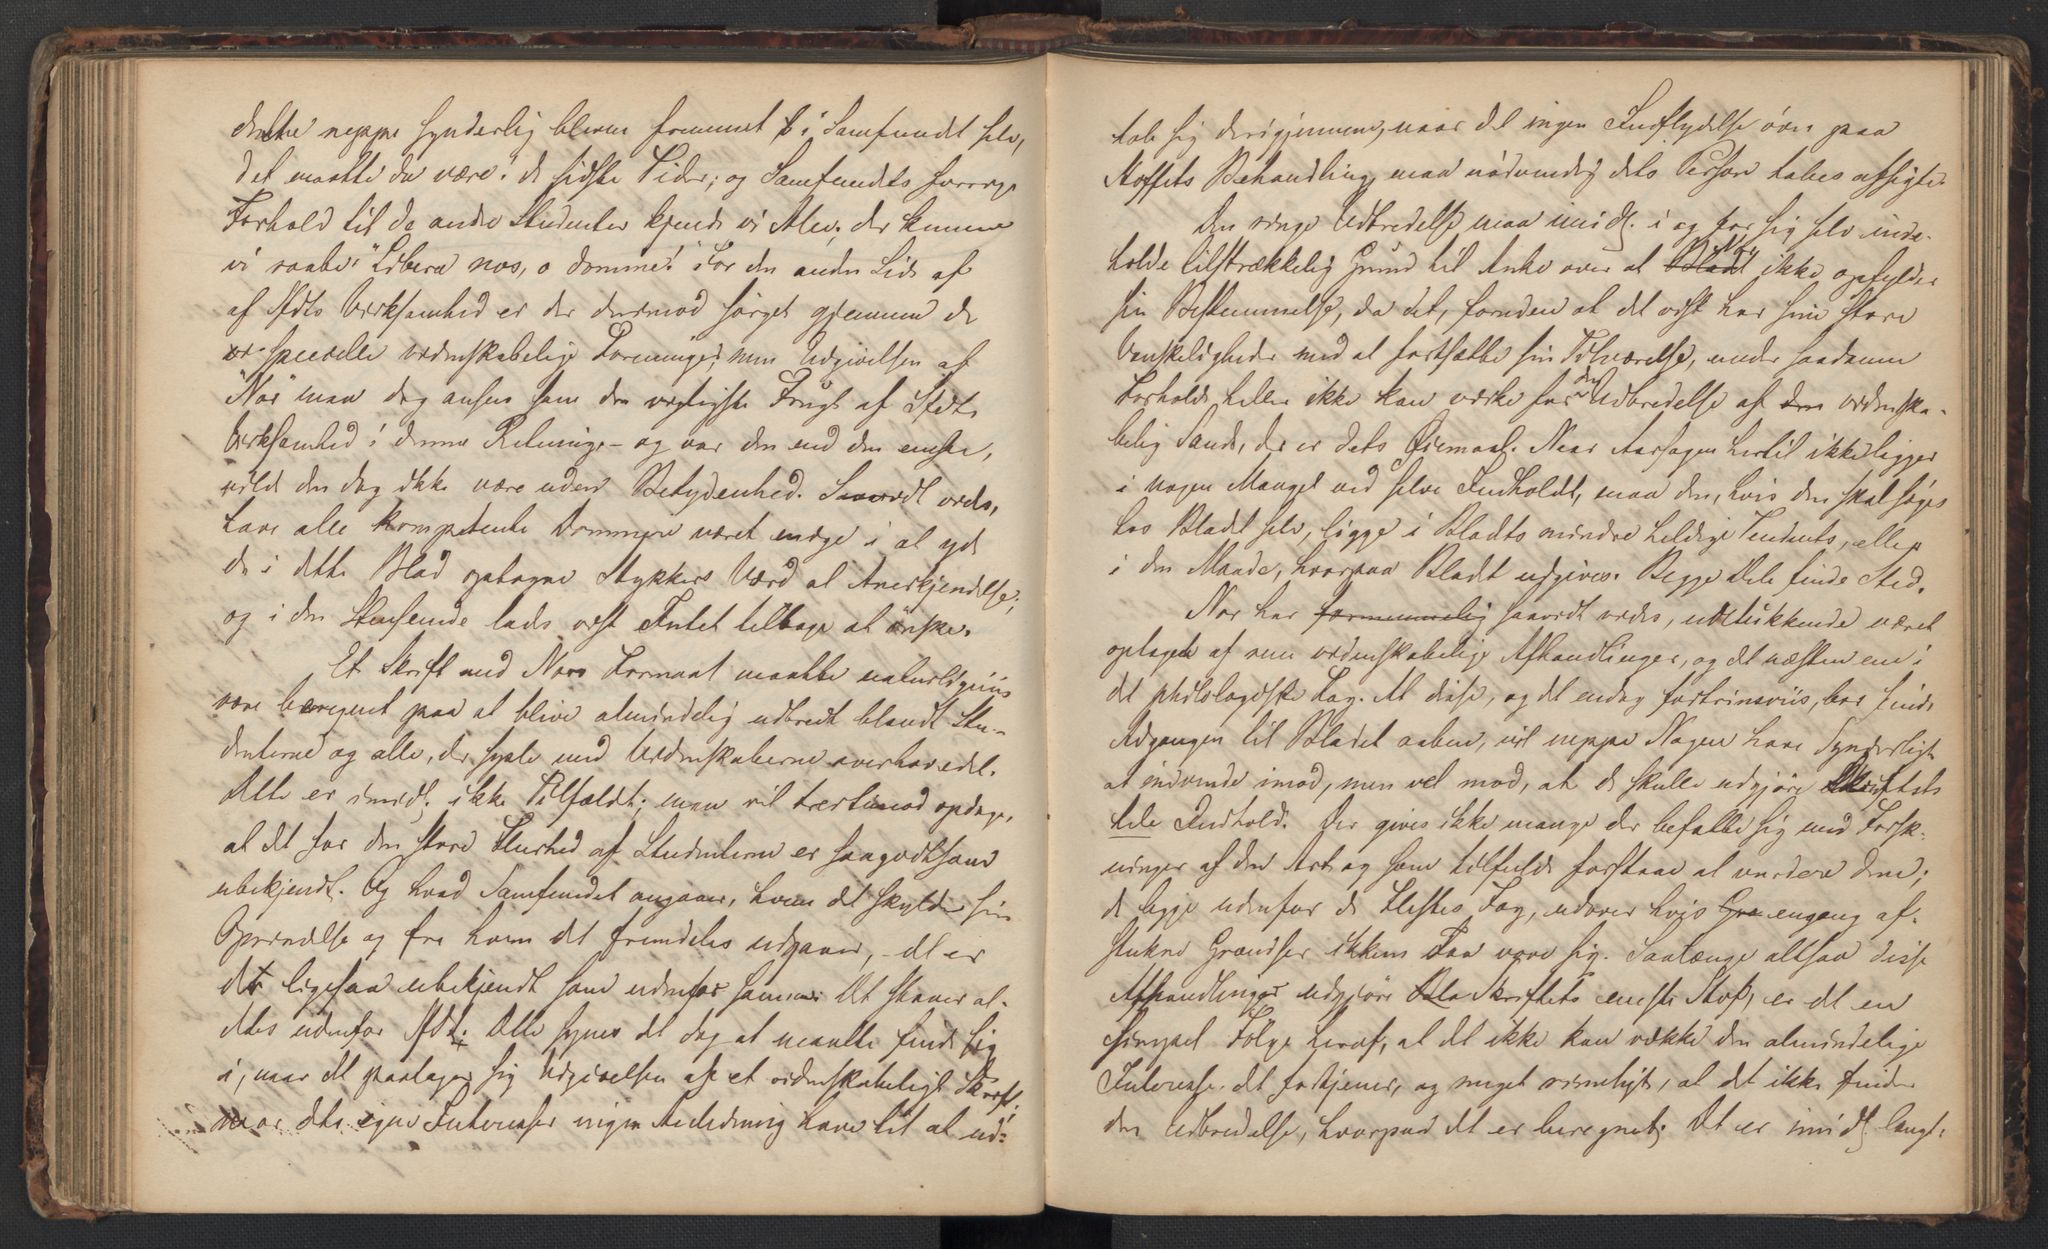 denne neppe synderlig bleven fremmet i Samfundet selv,
det maatte da være i de sidste Tider; og Samfundets forrige
Forhold til de andre Studenter kjende vi Alle, der kunne
vi raabe: "Libera nos, o domine!" For den anden Side af
af Sfdts Virksomhed er der derimod sørget gjennem de
specielle videnskabelige Foreninger, men Udgivelsen af
"Nor" maa dog ansees som den vigtigste Frugt af Sfdts
Virksomhed i denne Retning – og var den end den eneste,
vilde den dog ikke være uden Betydenhed. Saavidt vides,
have alle kompetente Dommere været enige i at yde
de i dette Blad optagne Stykkers Værd al Anerkjendelse;
og i den Henseende lades vist Intet tilbage at ønske.
Et Skrift med Nors Formaal maatte naturligviis
være beregnet paa at blive almindelig udbredt blandt Stu-
denterne og alle, der sysle med Videnskaberne overhovedet.
Dette er imidl. ikke Tilfældet; man vil tvertimod opdage,
at det for den store Fleerhed af Studenterne er saagodtsom
ubekjendt. Og hvad Samfundet angaaer, hvem det skylder sin
Oprindelse og fra hvem det fremdeles udgaaer, – det er
der ligesaa ubekjendt som udenfor samme. Det staaer al-
deles udenfor Sfdt. Dette synes det dog at maatte finde sig
i, naar det paatager sig Udgivelsen af et videnskabeligt Skrift,
naar dets egne Interesser ingen Anledning have til at ud-
tale sig derigjennem, naar det ingen Indflydelse øver paa
Stoffets Behandling, maa nødvendig dets Person tabes afsigte.
Den ringe Udbredelse maa imidl. i og for sig selv inde-
holde tilstrækkelig Grund til Anke over at Bladt Nor ikke opfylder
sin Bestemmelse, da det, foruden at det vist har sine store
Vanskeligheder med at fortsætte sin Tilværelse, under saadanne
Forholde heller ikke kan virke for den Udbredelse af den videnska-
belig Sands, der er dets Øiemaal. Naar Aarsagen hertil ikke ligger
i nogen Mangel ved selve Indholdet, maa den, hvis den skal søges
hos Bladet selv, ligge i Bladets mindre heldige Tendents, eller
i den Maade, hvorpaa Bladet udgives. Begge Dele finde Sted.
Nor har fornemmelig saavidt vides, udelukkende været
optaget af rene videnskabelige Afhandlinger, og det næsten ene i
det philologiske Fag. At disse, og det endog fortrinsviis, bør finde
Adgangen til Bladet aaben, vil neppe Nogen have Synderligt
at indvende imod, men vel mod, at de skulle udgjøre Skriftets
hele Indhold. Der gives ikke mange der befatte sig med Forsk-
ninger af den Art og som tilfulde forstaae at vurdere dem;
de ligge udenfor de Flestes Fag, udover hvis Gra engang af-
stukne Grændser ikkun Faa vove sig. Saalænge altsaa disse
Afhandlinger udgjøre Bla Skriftets eneste Stof, er det en
simpel Følge heraf, at det ikke kan vække den almindelige
Interesse det fortjener, og meget rimeligt, at det ikke finder
den Udbredelse, hvorpaa det er beregnet. Det er imidl. langt